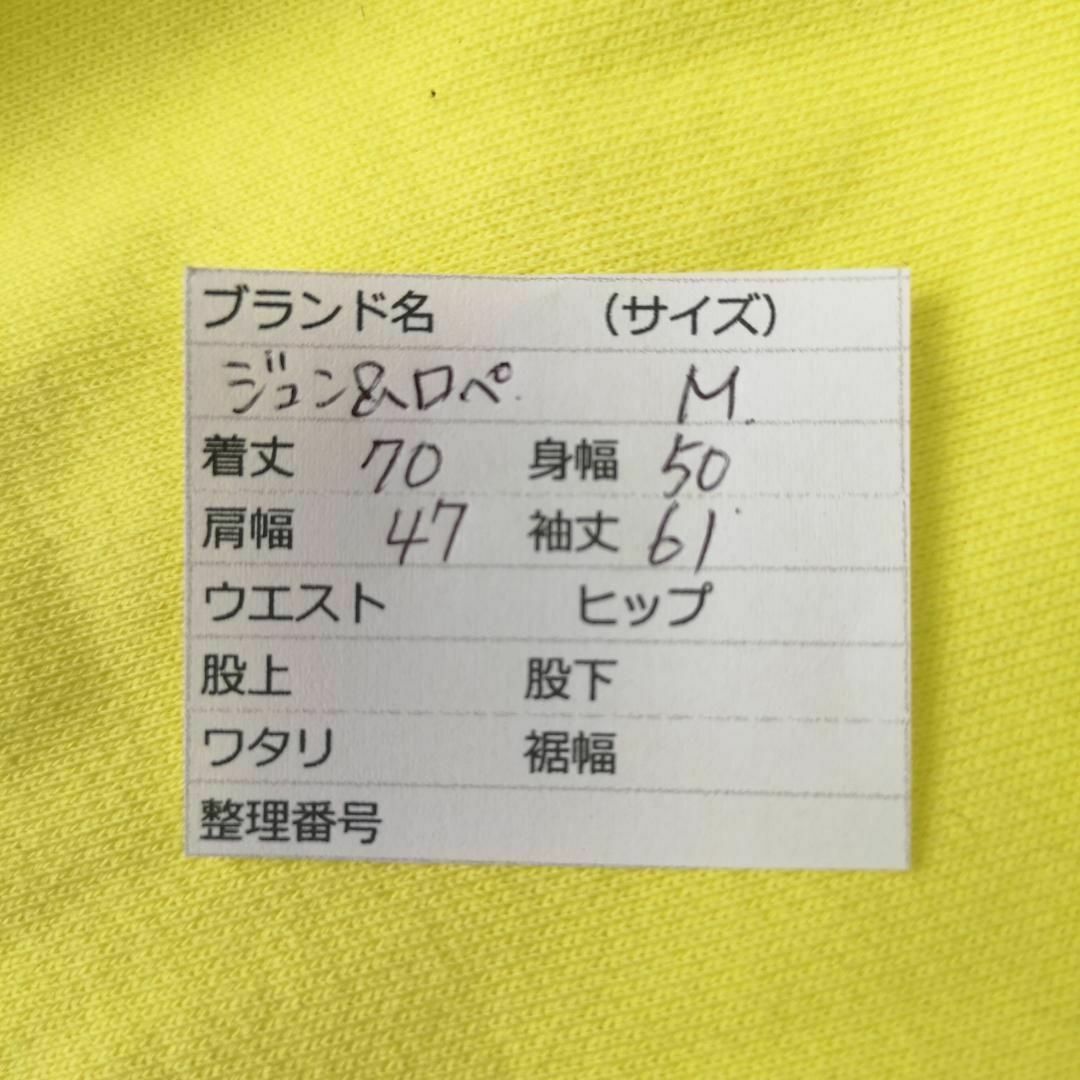 ブランド名 （サイズ）
ジュン&ロペ M
着丈 70 身幅 50
肩幅 47 袖丈 61
ウエスト ヒップ
股上 股下
ワタリ 裾幅
整理番号